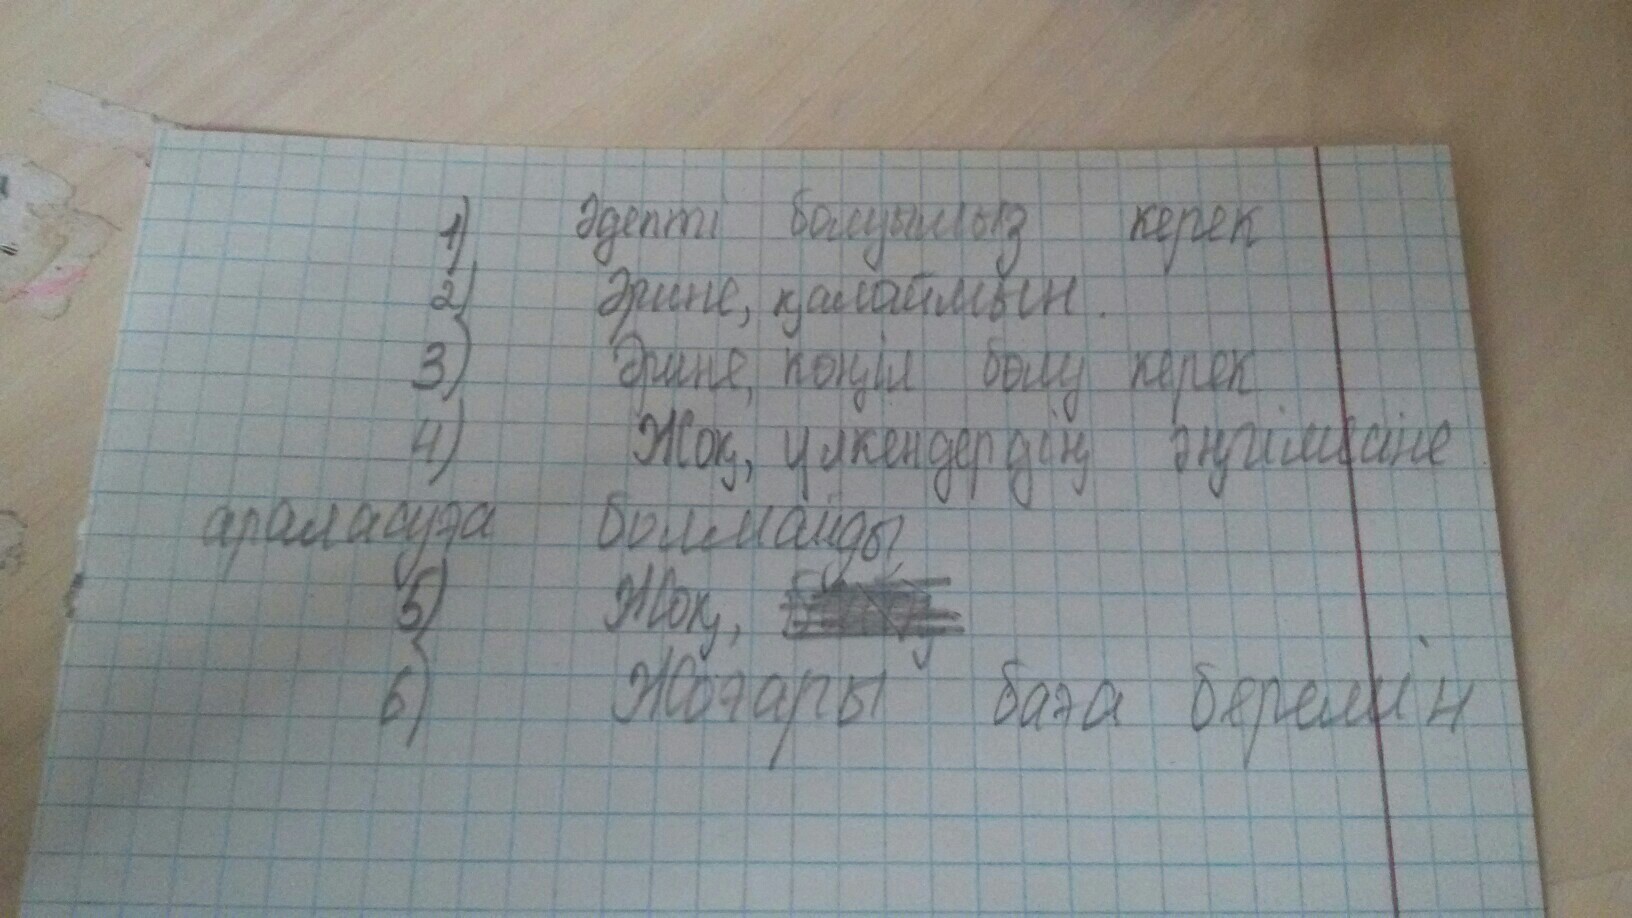 1) Әдепті болуымыз керек
2) Әрине, қалаймын.
3) Әрине, көңіл бөлу керек
4) Жоқ, үлкендердің әңгімесіне
араласуға болмайды
5) Жоқ,
6) Жоғары баға беремін